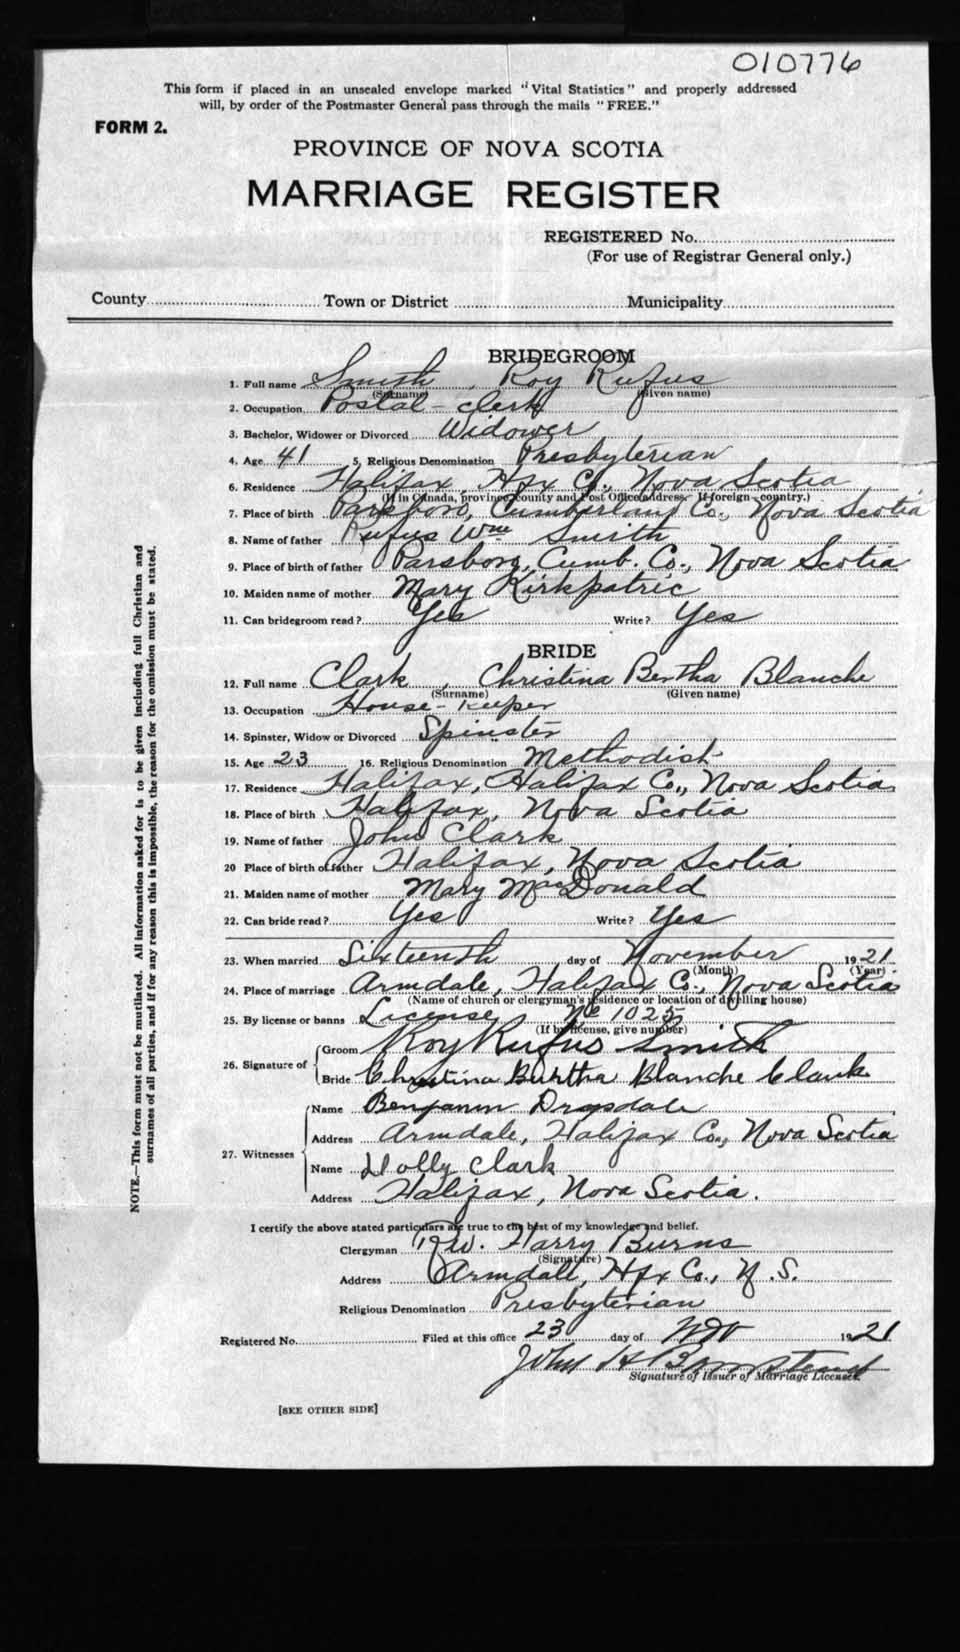 010776
This form if placed in an unsealed envelope marked "Vital Statistics" and properly addressed
will, by order of the Postmaster General pass through the mails "FREE."
FORM 2.
PROVINCE OF NOVA SCOTIA
MARRIAGE REGISTER
REGISTERED No.
(For use of Registrar General only.)
County Town or District Municipality
BRIDEGROOM
1. Full name Smith, Roy Rufus
(Surname) (Given name)
2. Occupation Postal-clerk
3. Bachelor, Widower or Divorced Widower
4. Age 41 5. Religious Denomination Presbyterian
6. Residence Halifax, Hfx Co., Nova Scotia
(If in Canada, province, county and Post Office address. If foreign country.)
7. Place of birth Parsboro, Cumberland Co., Nova Scotia
8. Name of father Rufus Wm. Smith
9. Place of birth of father Parsboro, Cumb. Co., Nova Scotia
10. Maiden name of mother Mary Kirkpatric
11. Can bridegroom read? Yes Write? Yes
BRIDE
12. Full name Clark, Christina Bertha Blanche
(Surname) (Given name)
13. Occupation House-keeper
14. Spinster, Widow or Divorced Spinster
15. Age 23 16. Religious Denomination Methodist
17. Residence Halifax, Halifax Co., Nova Scotia
18. Place of birth Halifax, Nova Scotia
19. Name of father John Clark
20 Place of birth of father Halifax, Nova Scotia
21. Maiden name of mother Mary MacDonald
22. Can bride read? Yes Write? Yes
23. When married Sixteenth day of November 1921
(Month) (Year)
24. Place of marriage Armdale, Halifax Co., Nova Scotia
(Name of church or clergyman's residence or location of dwelling house)
25. By license or banns License No 1025
(If by license, give number)
26. Signature of Groom Roy Rufus Smith
Bride Christina Burtha Blanche Clark
27. Witnesses Name Benjamin Drysdale
Address Armdale, Halifax Co., Nova Scotia
Name Dolly Clark
Address Halifax, Nova Scotia.
I certify the above stated particulars are true to the best of my knowledge and belief.
Clergyman Rev. Harry Burns
(Signature)
Address Armdale, Hfx Co., N.S.
Religious Denomination Presbyterian
Registered No. Filed at this office 23 day of Nov 1921
John H
Signature of Issuer of Marriage Licenses.
[SEE OTHER SIDE]
NOTE.—This form must not be mutilated. All information asked for is to be given including full Christian and
surnames of all parties, and if for any reason this is impossible, the reason for the omission must be stated.